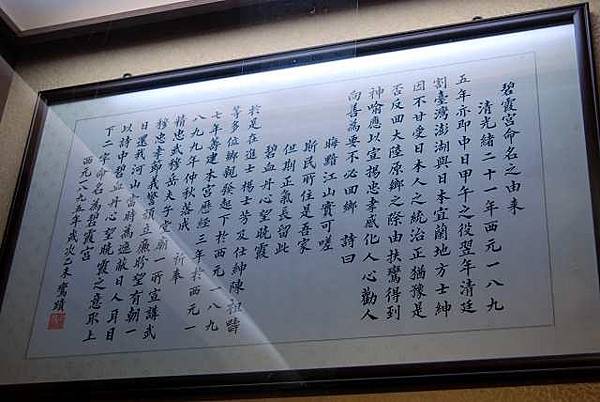 碧霞宮命名之由來
清光緒二十一年西元一八九
五年亦即中日甲午之役翌年清廷
割臺灣澎湖與日本宜蘭地方士紳
因不甘受日本人之統治正猶豫是
否反回大陸原鄉之際由扶鸞得到
神喻應以宣揚忠孝感化人心勸人
向善為要不必回鄉 詩曰
晦黯江山實可嗟
斯民所住是吾家
但期正氣長留此
碧血丹心望曉霞
於是在進士楊士芳及仕紳陳祖疇
等多位鄉親發起下於西元一八九
七年籌建本宮歷經三年於西元一
八九九年仲秋落成 祈奉
精忠武穆岳夫子堂廟一所宣講武
穆忠孝節義警頑立廉盼望有朝一
日還我河山當時為遮敵日人耳目
以詩中碧血丹心望曉霞之意取上
下二字命名為碧霞宮
西元一八九五年歲次乙未鸞蹟